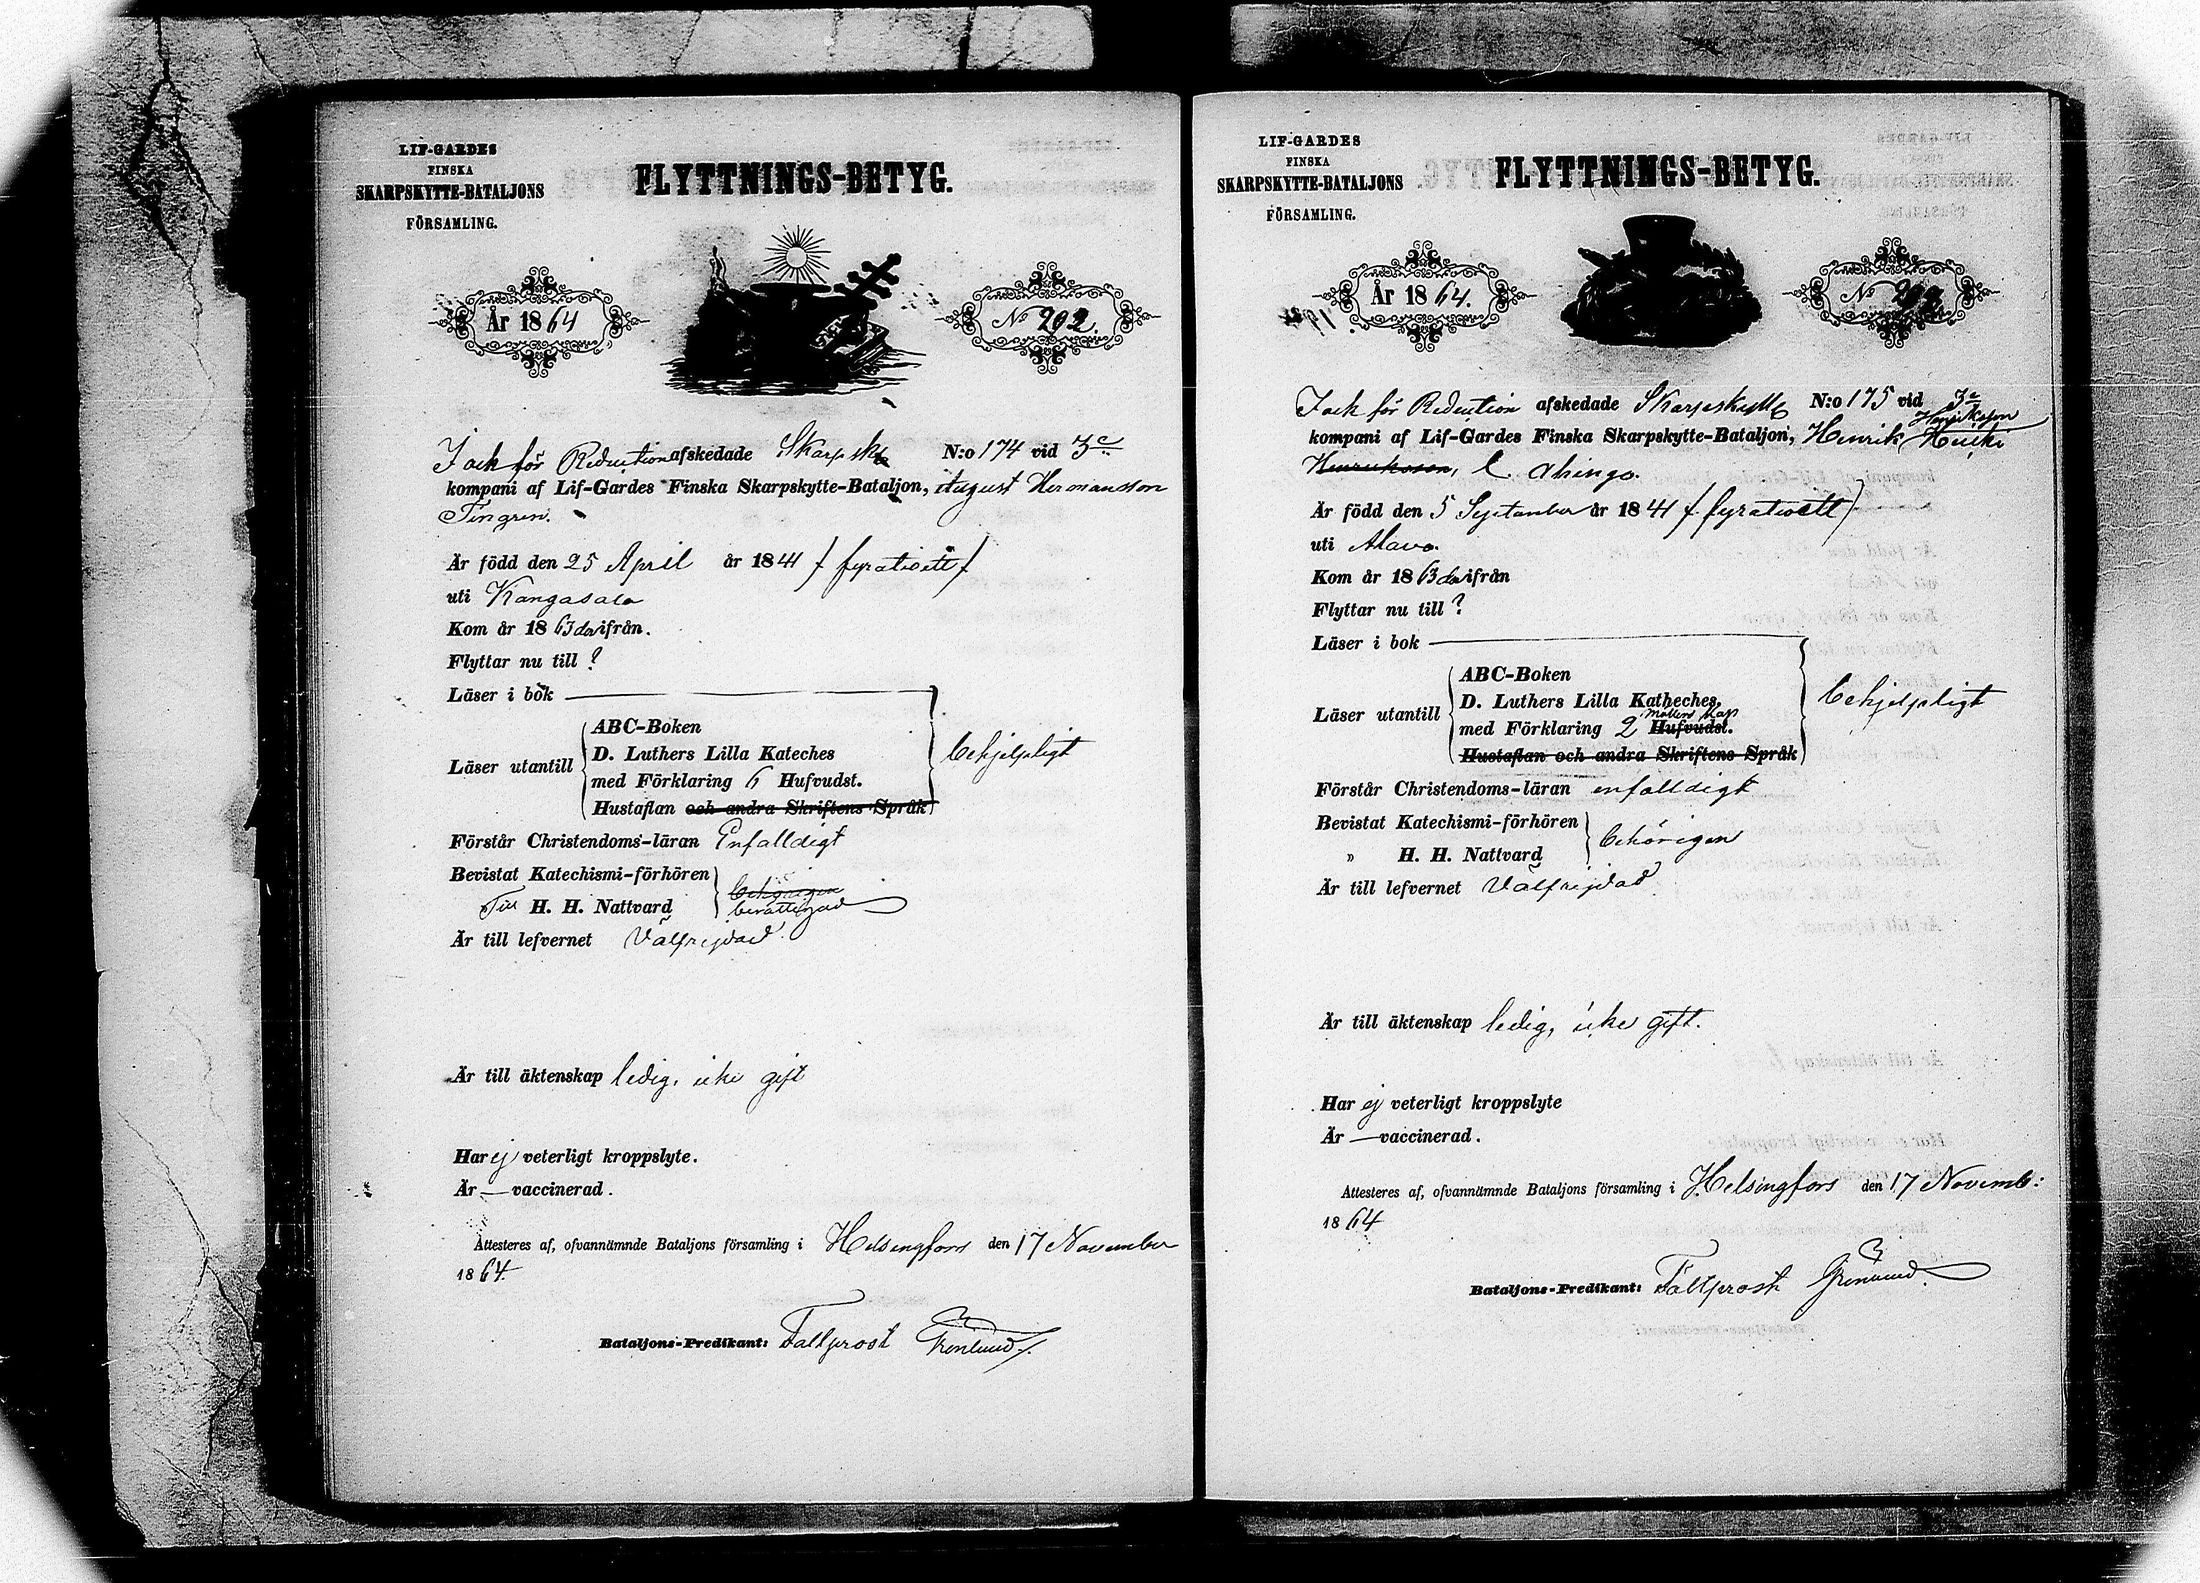 LIF-GARDES
FINSKA
SKARPSKYTTE-BATALJONS
FÖRSAMLING.
FLYTTNINGS-BETYG.
År 1864
No 202.
för Reduction afskedade Skarpsk N:o 174 vid 3e
kompani af Lif-Gardes Finska Skarpskytte-Bataljon, August Hermansson
Tingren.
Är född den 25 April år 1841 / fyratioett /
uti Kangasala
Kom år 1863 derifrån.
Flyttar nu till ?
Läser i bok
Läser utantill
ABC-Boken
D. Luthers Lilla Kateches
med Förklaring 6 Hufvudst.
Hustaflan och andra Skriftens Språk
behjelpligt
Förstår Christendoms-läran Enfalldigt
Bevistat Katechismi-förhören behörigen
Till H. H. Nattvard berättigad
Är till lefvernet Välfrejdad
Är till äktenskap ledig, icke gift
Har ej veterligt kroppslyte.
Är — vaccinerad.
Attesteres af, ofvannämnde Bataljons församling i Helsingfors den 17 November
1864.
Bataljons-Predikant: Fältprost Grönlund
LIF-GARDES
FINSKA
SKARPSKYTTE-BATALJONS
FÖRSAMLING.
FLYTTNINGS-BETYG.
År 1864.
No
för Reduction afskedade Skarpskytte N:o 175 vid 3e
Henriksson
kompani af Lif-Gardes Finska Skarpskytte-Bataljon, Henrik
Henriksson,
Är född den 5 September år 1841 / fyratioett /
uti Alavo.
Kom år 1863 derifrån
Flyttar nu till ?
Läser i bok
Läser utantill
ABC-Boken
D. Luthers Lilla Katheches,
med Förklaring 2 Hufvudst.
Hustaflan och andra Skriftens Språk
behjelpligt
Förstår Christendoms-läran enfalldigt
Bevistat Katechismi-förhören
" H. H. Nattvard
behörigen
Är till lefvernet Välfrejdad
Är till äktenskap ledig, icke gift.
Har ej veterligt kroppslyte
Är — vaccinerad.
Attesteres af, ofvannämnde Bataljons församling i Helsingfors den 17 Novemb:
1864
Bataljons-Predikant: Fältprost Grönlund.